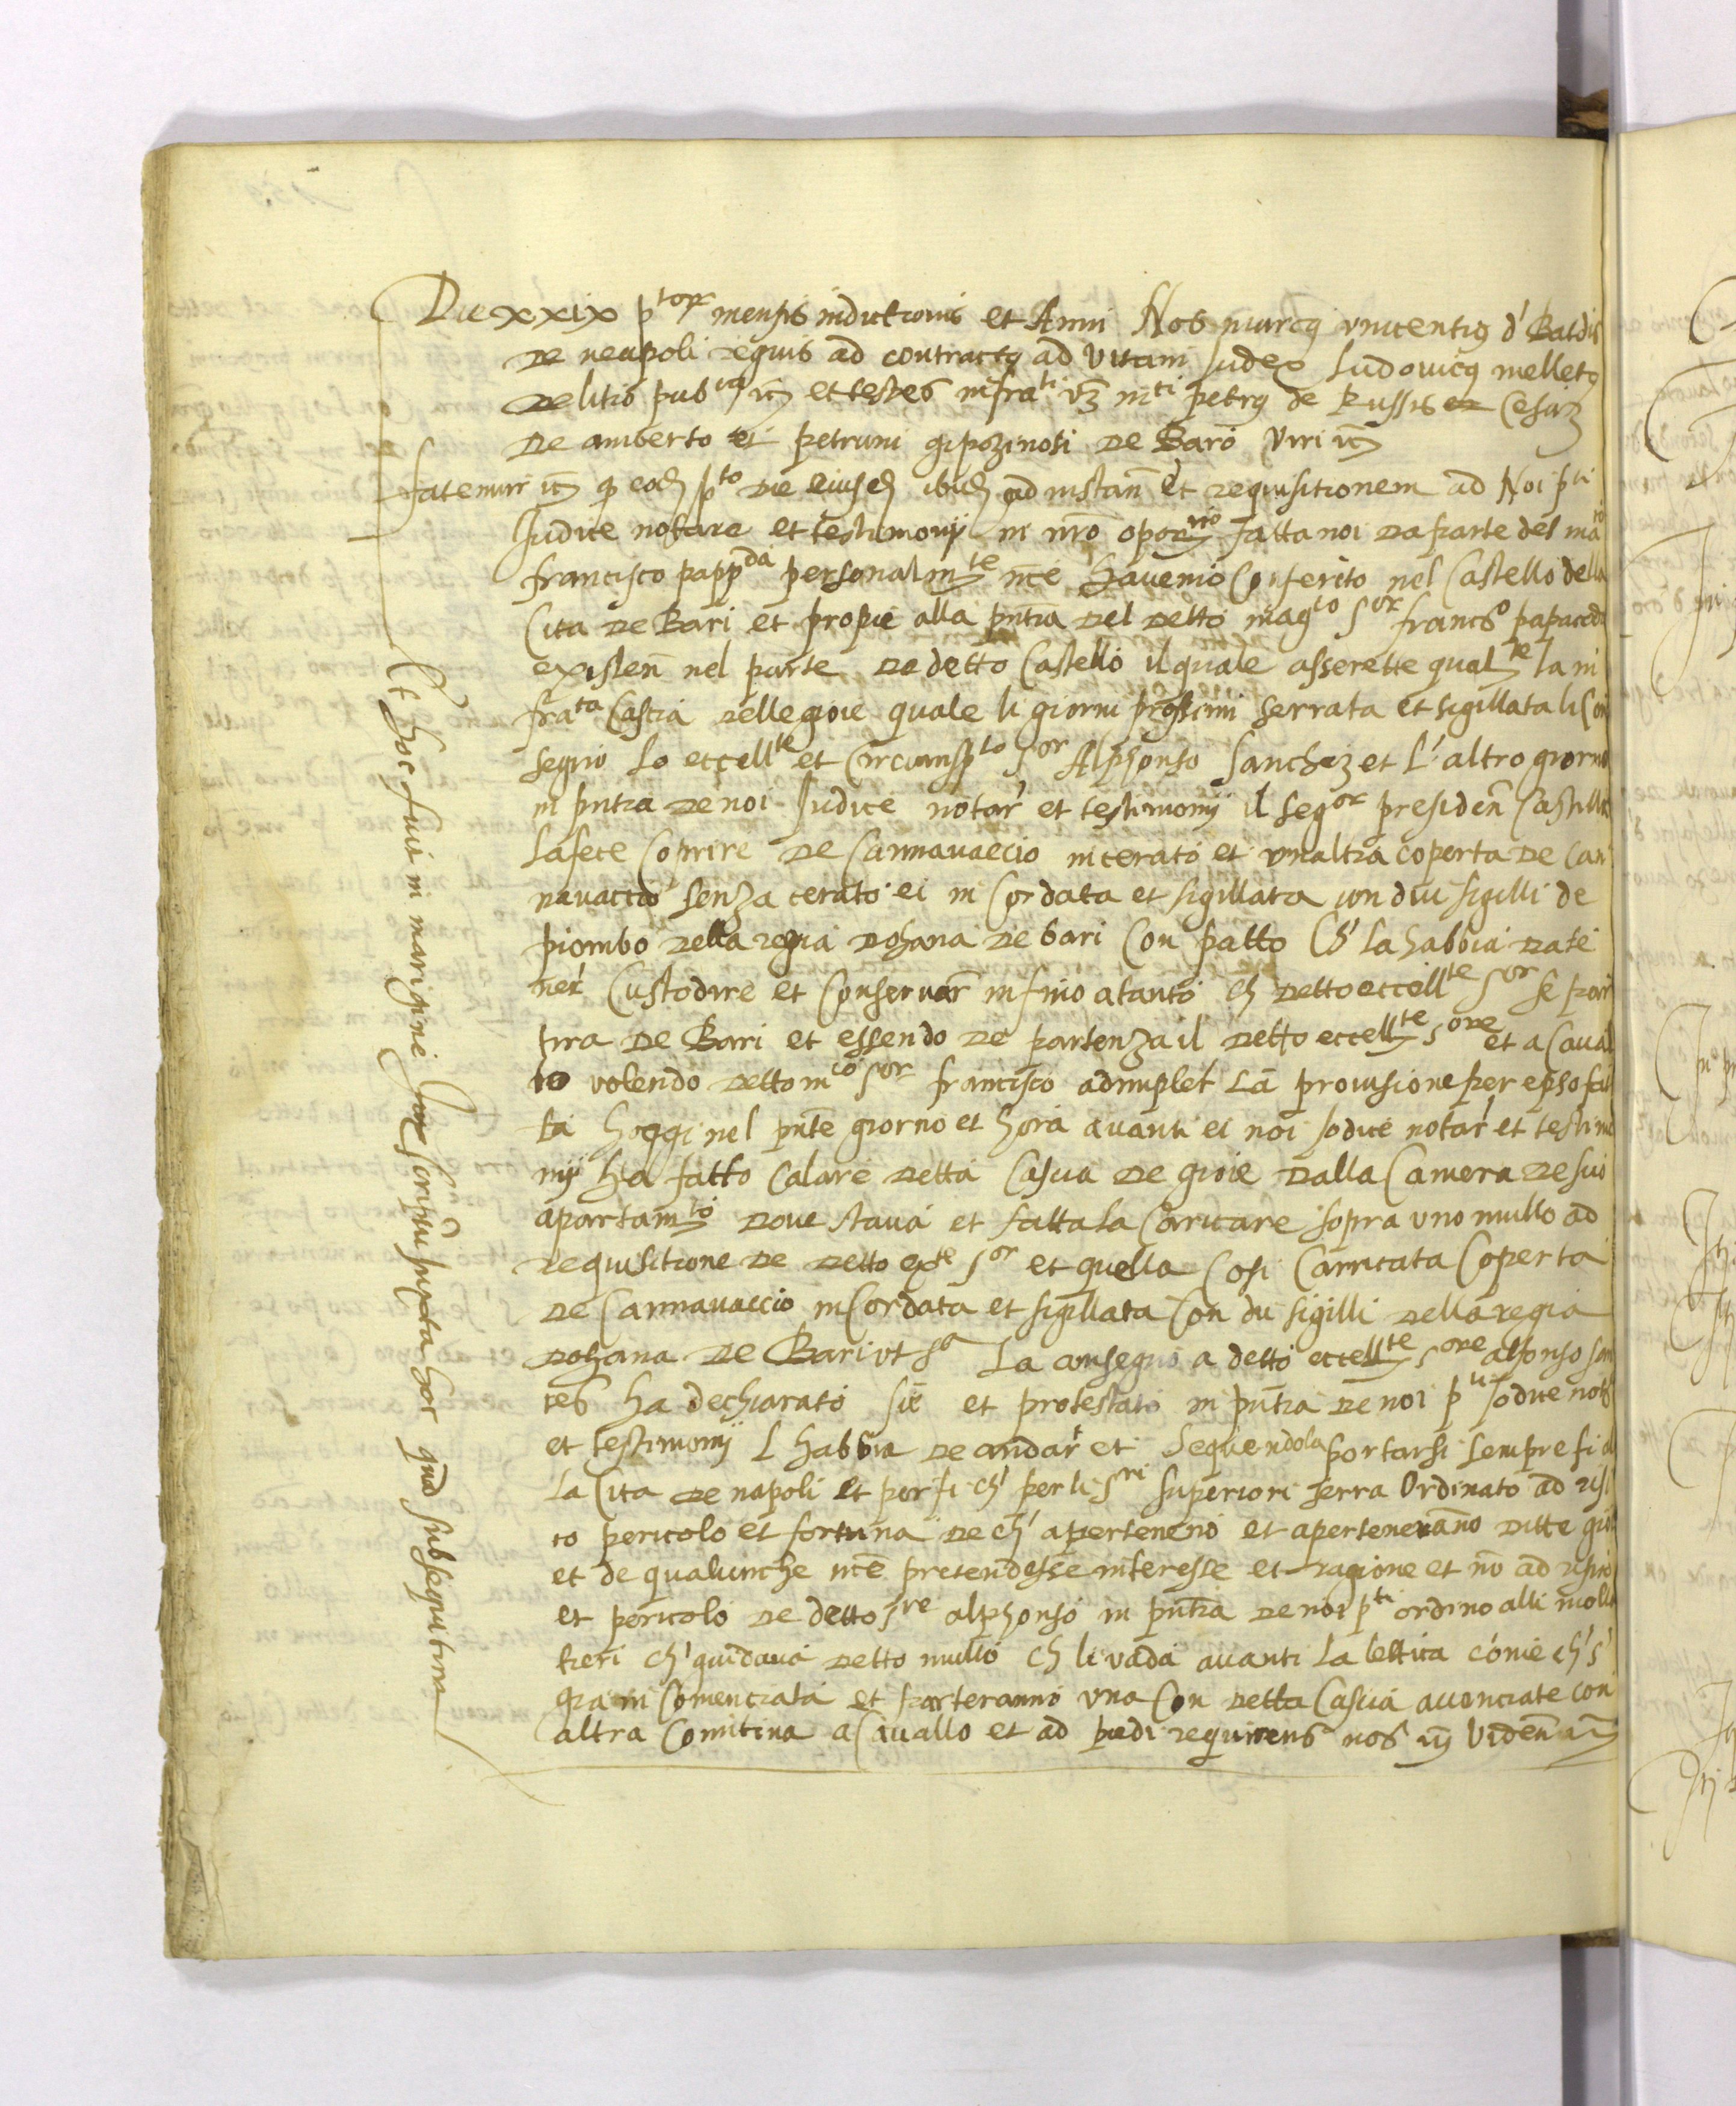 Die xxix p^tor mensis indictionis et Anni Nos marcq vincentiq d' Baldis
De neapoli regius ad contractq ad Vitam Judex Ludovicq melletq
De litis pub^cq et testes infra^ti vz m^ci petrq de Russis et Cesarz
De amberto et petrum De Baro Viri
fatemur eod p^to Die eiusd ibid ad instan et requisitionem ad Noi p^ti
Judice notare et testimonij in nro fatta noi Da parte del ma^co
francisco papp^da personalm^te nce havemo Conferito nel Castello della
Cita De Bari et propie alla pntia Del Detto mag^co S^or franc^co papaceda
existen nel parte De detto Castello il quale asserette qual^te la in
fra^ta Cascia Delle gioie quale li giorni prossimi serrata et sigillata li Con
segno Lo eccell^te et Circumsp^to S^or Alphonso Sanchez et L'altro giorno
in pntia De noi Judice notar et testimonij il Seg^or presiden Castillo
La fece Coprire De Cannavaccio incerato et vnaltra coperta De Can
navaccio senza cerato et in Cordata et sigillata con dui sigilli de
piombo Della regia Dohana De bari Con patto Ch' la habbia Da te
ner Custodire et Conservar infino a tanto ch Detto eccell^te S^or se par
tira De Bari et essendo De partenza il Detto eccell^te S^ore et a Caval
lo volendo Detto m^co S^or francisco adimplet La provisione per epso fat
ta hoggi nel pnte giorno et hora avanti ei noi Jodice notar et testimo
nij ha fatto Calare Detta Cascia De gioie Dalla Camera De suo
apartam^to Dove stava et fatta la Carricare sopra uno mullo ad
requisitione De Detto ex^te S^or et quella Cosi Carricata Coperta
De Cannavaccio inCordata et sigillata Con dui sigilli Della regia
Dohana De Bari ut s^a La consegno a detto eccell^te S^ore alfonso san
ces ha dechiarato sic et protestato in pntia De noi p^ti Jodice not
et testimonij L habbia De andar et Seguendola portarsi sempre fi a
La Cita De napoli et per fi ch' per li S^ri superiori serra Ordinato ad risi
co pericolo et fortuna De ch' aperteneno et apertenerano Ditte gioi
et de qualunche nce pretendesse interesse et ragione et no ad risico
et pericolo De detto S^re alphonso in pntia De noi p^ti ordino alli molla
tieri ch' guidava Detto mullo ch li vada avanti La lettica come ch' s'
gia in Comenciata et parteranno una Con Detta Cascia avonciate con
altra Comitiva a Cavallo et ad piedi requirens nos Viden
Et hoc fuit in marigine scriptu supta hoc quod subsequitur